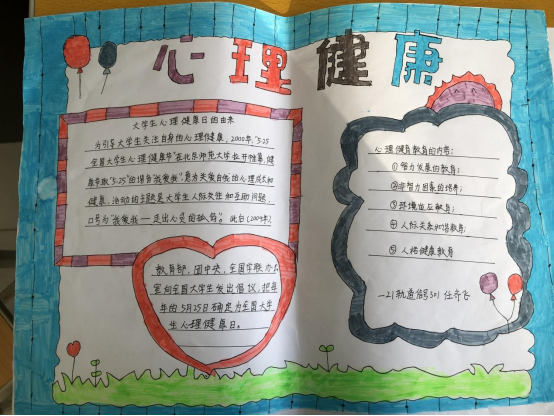 心理健康
大学生心理健康日的由来
为引导大学生关注自身的心理健康,2000年,"5.25
全国大学生心理健康节"在北京师范大学拉开帷幕,健
康节取"5.25"的谐音"我爱我",意为关爱自我的心理成长和
健康,活动的主题是大学生人际交往和互助问题,
口号为"我爱我——走出心灵的孤岛"。
教育部、团中央、全国学联办公
室向全国大学生发出倡议,把每
年的5月25日确定为全国大学
生心理健康日。
心理健育教育的内容:
①智力发展的教育;
②非智力因素的培养;
③环境适应教育;
④人际关系和谐教育;
⑤人格健康教育